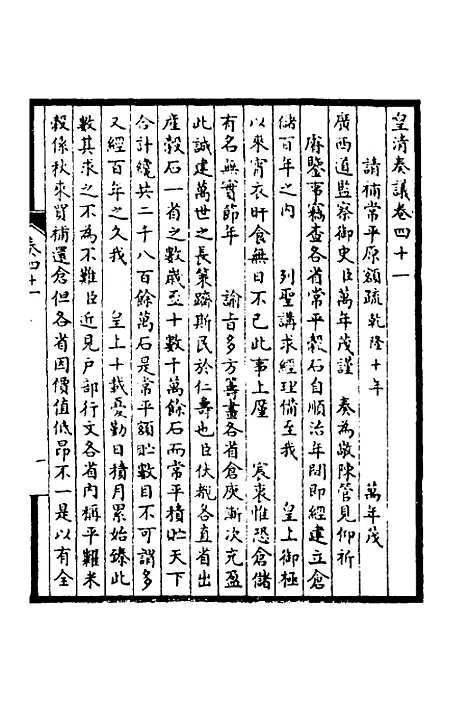 皇清奏議卷四十一
請補常平原額疏乾隆十年 萬年茂
廣西道監察御史臣萬年茂謹 奏為敬陳管見仰祈
睿鑒事竊查各省常平穀石自順治年間即經建立倉
儲百年之內 列聖講求經理備至我 皇上御極
以來宵衣旰食無日不已此事上廑 宸衷惟恐倉儲
有名無實節年 諭旨多方籌畫各省倉庾漸次充盈
此誠建萬世之長策躋斯民於仁壽也臣伏覩各直省出
産穀石一省之數歲至十數千萬餘石而常平積貯天下
合計纔共二千八百餘萬石是常平額貯數目不可謂多
又經百年之久我 皇上十載憂勤日積月累始臻此
數其求之不為不難臣近見戶部行文各省內稱平糶米
穀係秋來買補還倉但各省因價值低昂不一是以有全
奏四十一
一